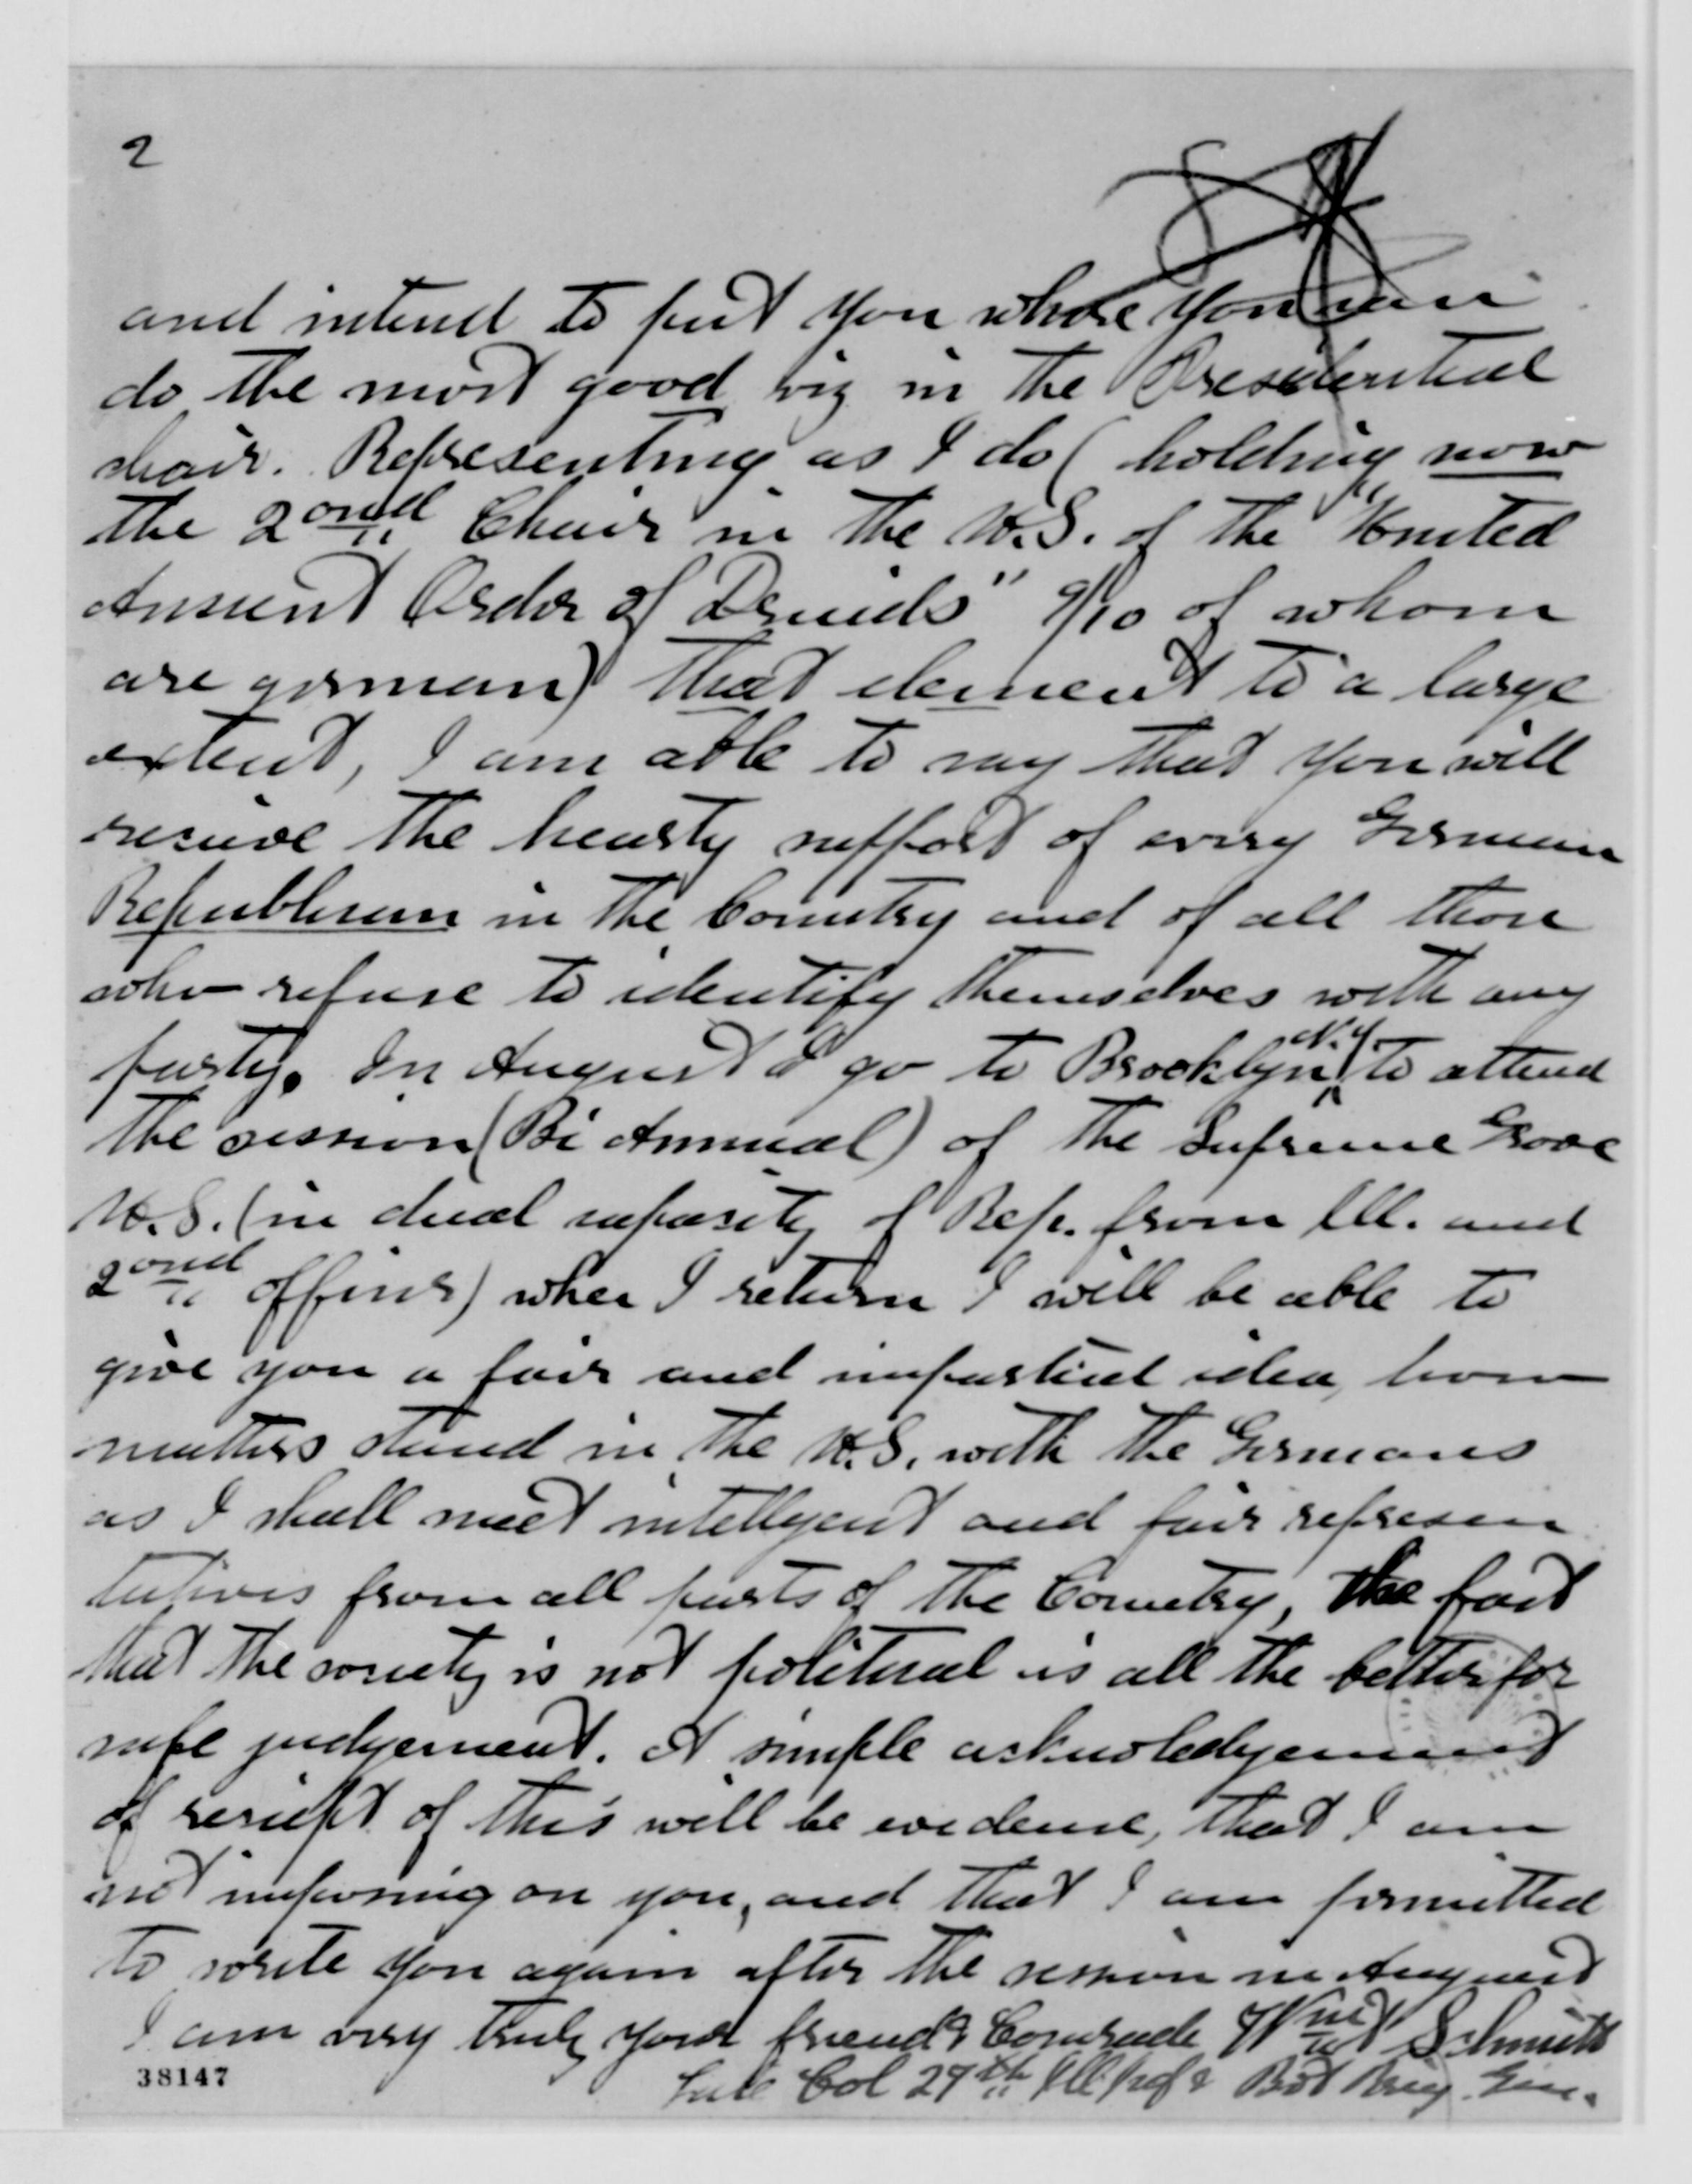 2
and intend to put you where you can
do the most good viz in the Presidential
chair. Representing as I do ( holding now
the 2ond Chair in the U.S. of the "United
Ancient Order of Druids" 9/10 of whom
are german) that element to a large
extent, I am able to say that you will
recieve the hearty support of every German
Republican in the Country and of all those
who refuse to identify themselves with any
party. In August I go to Brooklyn N.Y. to attend
the session (Bi Annual) of the Supreme Grove
U.S. (in dual capacity of Rep. from Ill. and
2ond officer) when I return I will be able to
give you a fair and impartial idea, how
matters stand in the U.S. with the Germans
as I shall meet intelligent and fair represen
tatives from all parts of the Country, the fact
that the society is not political is all the better for
safe judgement. A simple acknowledgement
of reciept of this will be evidence, that I am
not imposing on you, and that I am permitted
to write you again after the session in August
I am very truly your friend & Comrade Wm Schmitt
Late Col 27th Ill Inf & Bvt Brig. Gen.
38147